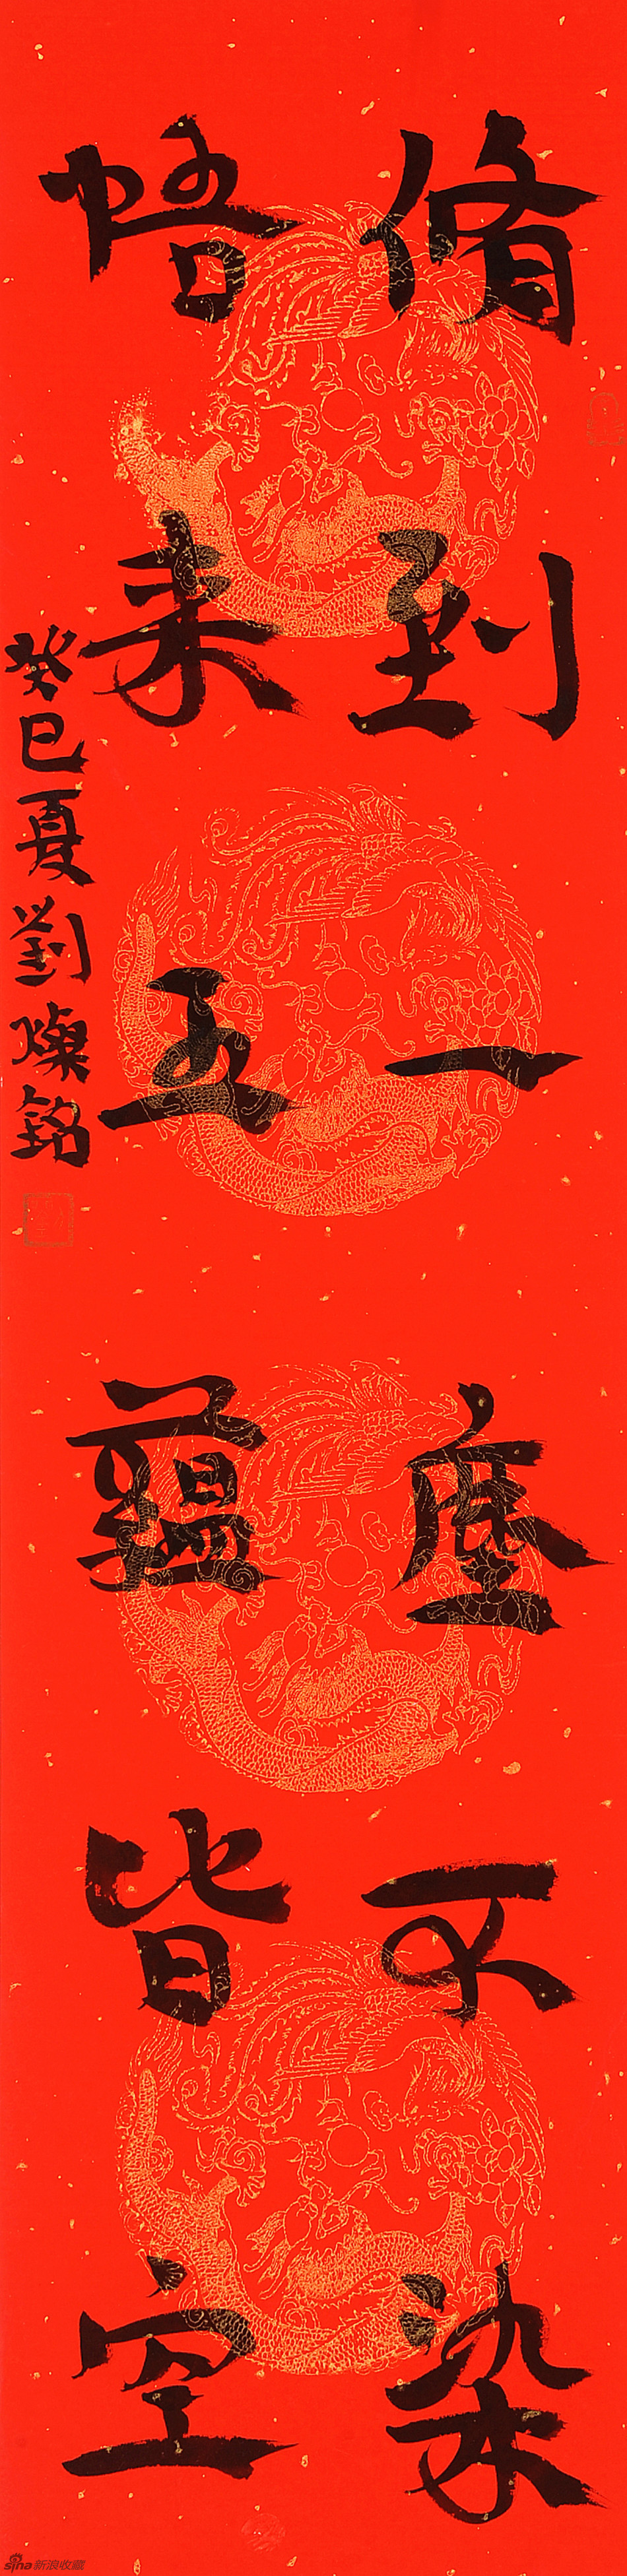 脩到一塵不染
悟来五蘊皆空
癸巳夏劉燦銘
sina新浪收藏